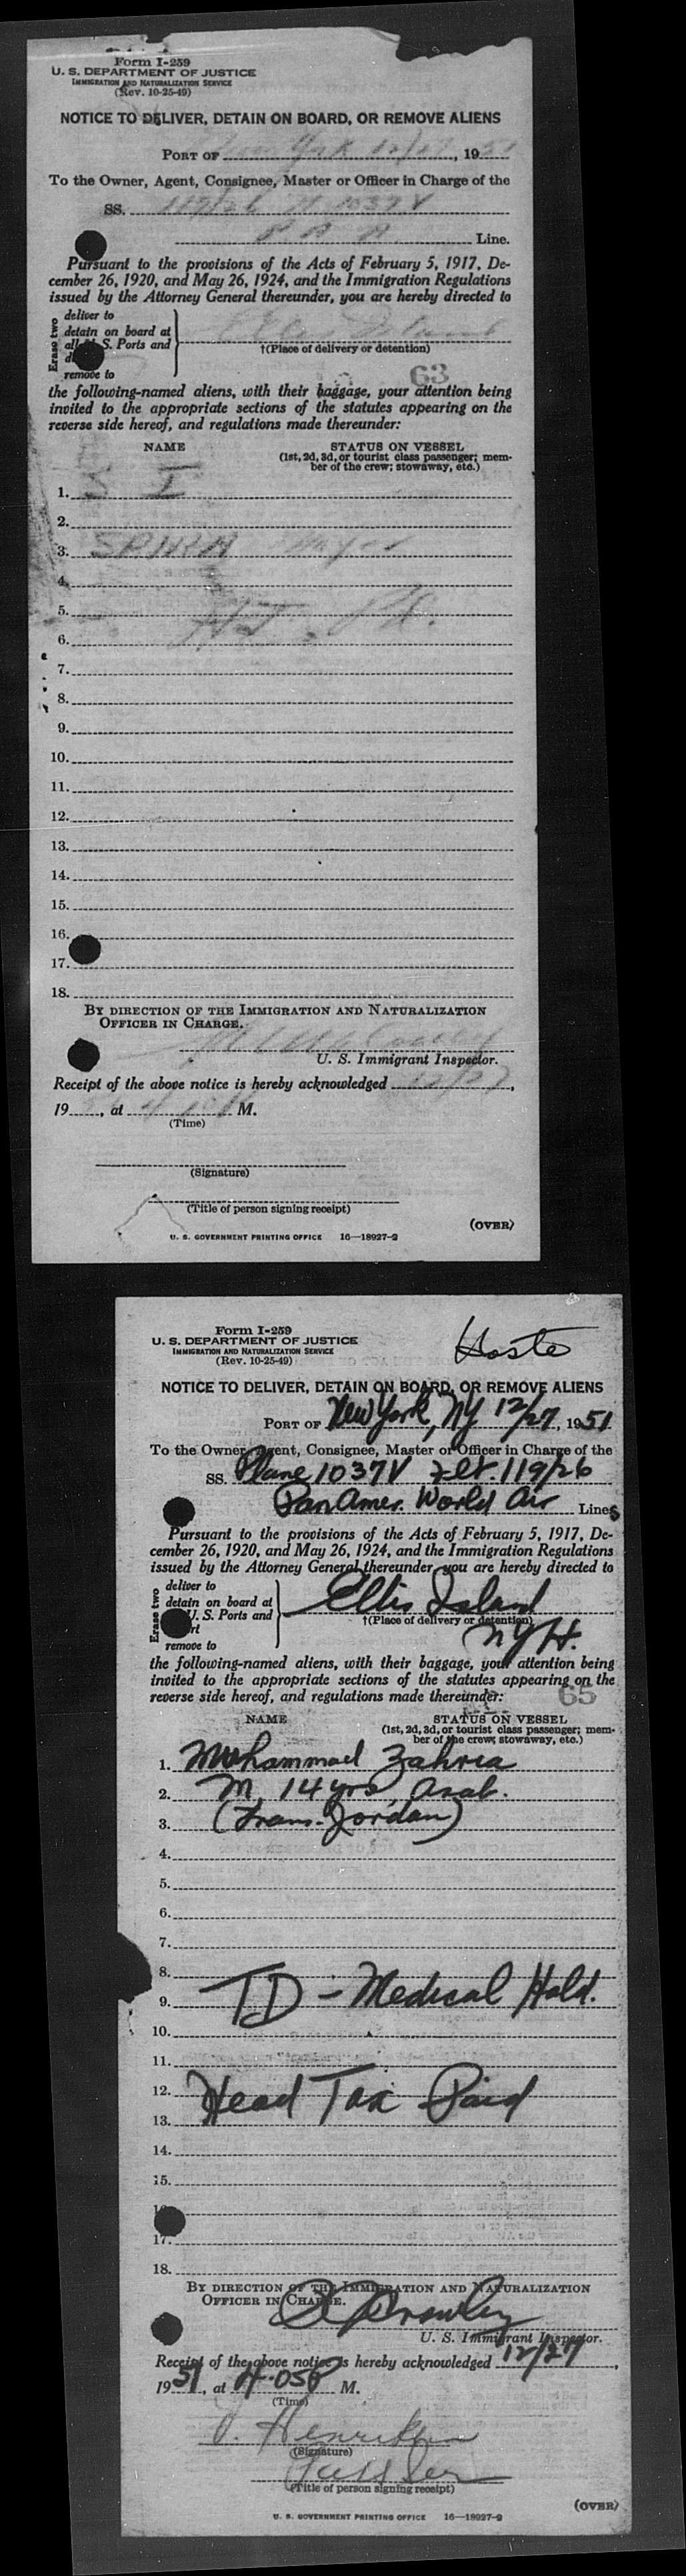 Form I-259
U. S. DEPARTMENT OF JUSTICE
IMMIGRATION AND NATURALIZATION SERVICE
(Rev. 10-25-49)
NOTICE TO DELIVER, DETAIN ON BOARD, OR REMOVE ALIENS
PORT OF New York 12/27, 1951
To the Owner, Agent, Consignee, Master or Officer in Charge of the
SS. 119/26 N 1037V
P A A Line.
Pursuant to the provisions of the Acts of February 5, 1917, De-
cember 26, 1920, and May 26, 1924, and the Immigration Regulations
issued by the Attorney General thereunder, you are hereby directed to
Erase two
deliver to
detain on board at
all S. Ports and
remove to
Ellis Island
†(Place of delivery or detention)
63
the following-named aliens, with their baggage, your attention being
invited to the appropriate sections of the statutes appearing on the
reverse side hereof, and regulations made thereunder:
NAME STATUS ON VESSEL
(1st, 2d, 3d, or tourist class passenger; mem-
ber of the crew; stowaway, etc.)
1. S I
2.
3.
4.
5.
6.
7.
8.
9.
10.
11.
12.
13.
14.
15.
16.
17.
18.
BY DIRECTION OF THE IMMIGRATION AND NATURALIZATION
OFFICER IN CHARGE.
U. S. Immigrant Inspector.
Receipt of the above notice is hereby acknowledged 12/27,
19, at M.
(Time)
(Signature)
(Title of person signing receipt)
(OVER)
U. S. GOVERNMENT PRINTING OFFICE 16—18927-2
Form I-259
U. S. DEPARTMENT OF JUSTICE
IMMIGRATION AND NATURALIZATION SERVICE
(Rev. 10-25-49)
Hoste
NOTICE TO DELIVER, DETAIN ON BOARD, OR REMOVE ALIENS
PORT OF New York, NY 12/27, 1951
To the Owner, Agent, Consignee, Master or Officer in Charge of the
SS. Plane 1037V Flt. 119/26
Pan Amer. World Air Lines
Pursuant to the provisions of the Acts of February 5, 1917, De-
cember 26, 1920, and May 26, 1924, and the Immigration Regulations
issued by the Attorney General thereunder, you are hereby directed to
Erase two
deliver to
detain on board at
U. S. Ports and
remove to
Ellis Island
†(Place of delivery or detention)
NYH.
the following-named aliens, with their baggage, your attention being
invited to the appropriate sections of the statutes appearing on the
reverse side hereof, and regulations made thereunder:
65
NAME STATUS ON VESSEL
(1st, 2d, 3d, or tourist class passenger; mem-
ber of the crew; stowaway, etc.)
1. Muhammad Zahria
2. M, 14 yrs, Arab.
3. (Trans-Jordan)
4.
5.
6.
7.
8.
9. TD - Medical Hold.
10.
11.
12.
13. Head Tax Paid
14.
15.
17.
18.
BY DIRECTION OF THE IMMIGRATION AND NATURALIZATION
OFFICER IN CHARGE.
U. S. Immigrant Inspector.
Receipt of the above notice is hereby acknowledged 12/27,
1951, at 4:05P M.
(Time)
(Signature)
(Title of person signing receipt)
(OVER)
U. S. GOVERNMENT PRINTING OFFICE 16—18927-2